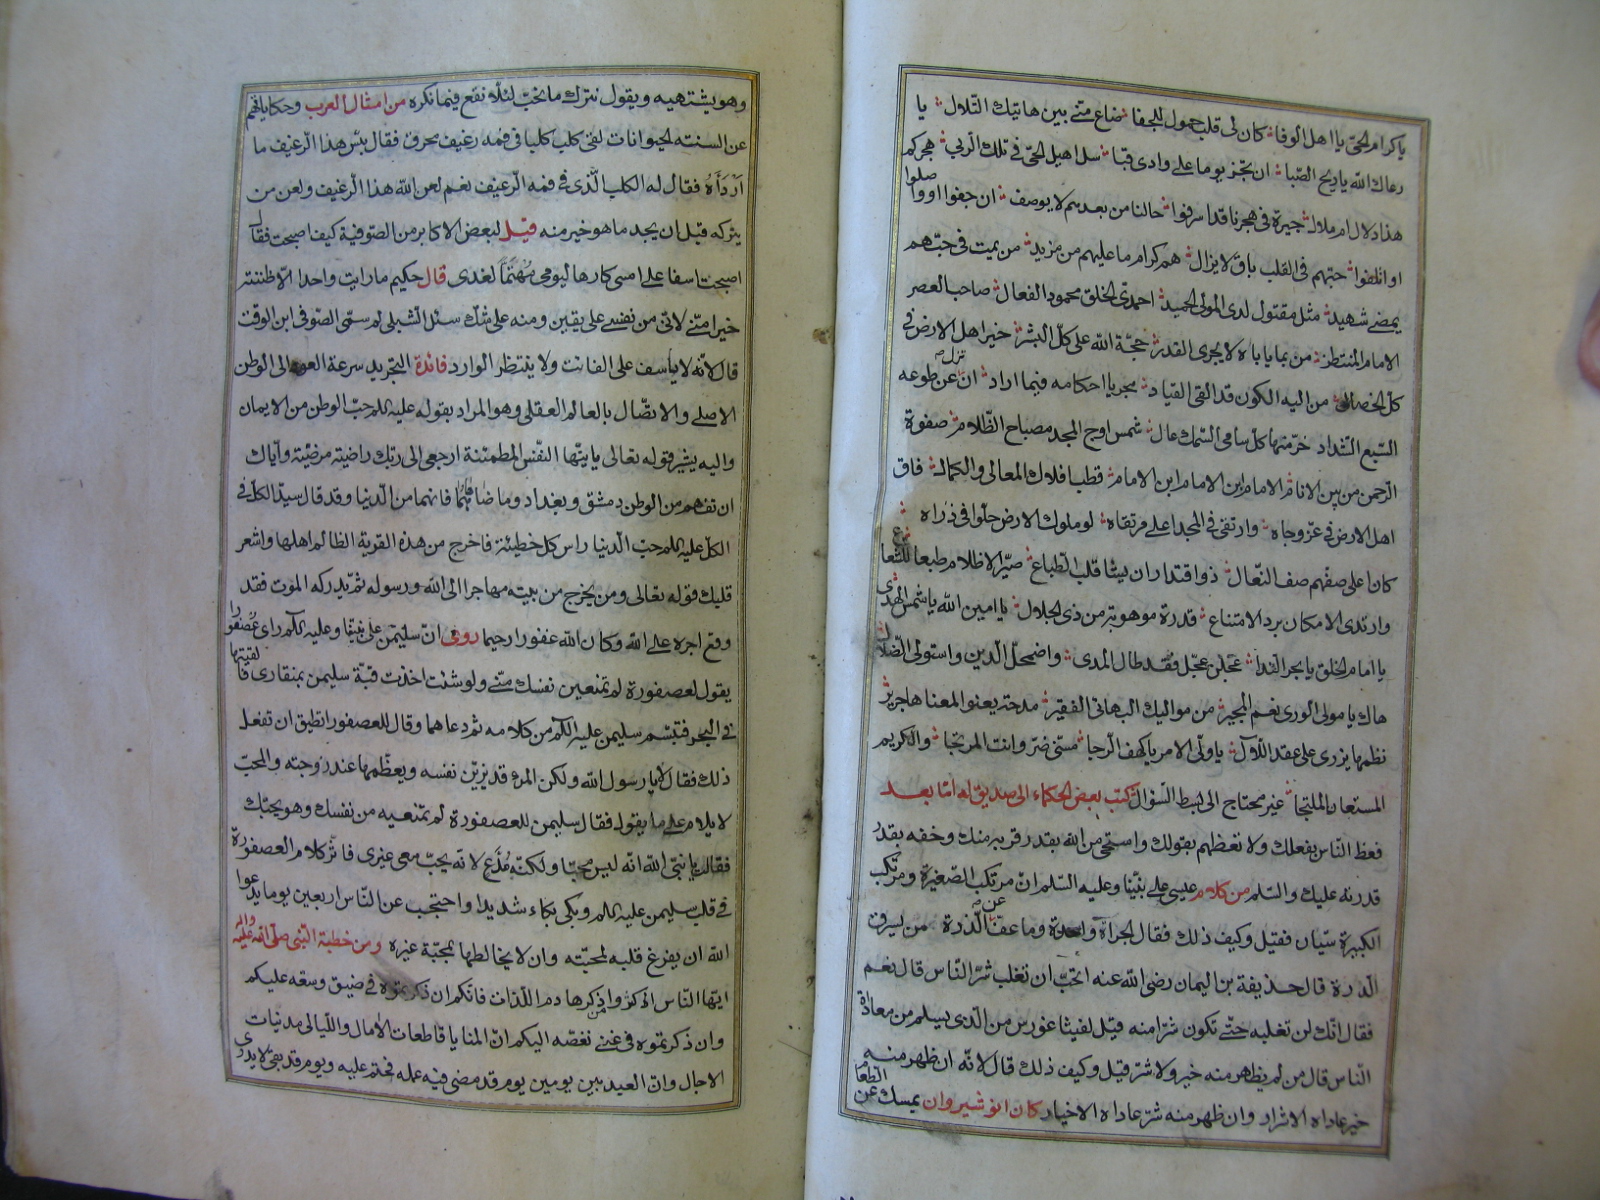 يا كرام الحيّ يا اهل الوفا كان لى قلب حمول للجفا ضاع منّى بين هاتيك التّلال يا
رعاك الله يا ريح الصّبا ان تجز يوما على وادى قبا سل اهيل الحىّ فى تلك الرّبى هجركم
هذا دلال ام ملال جيرة فى هجرنا قد اسرفوا حالنا من بعدهم لا يوصف ان جفوا او واصلوا
او اتلفوا حبّهم فى القلب باق لا يزال هم كرام ما عليهم من مزيد من يمت فى حبّهم
يمضى شهيد مثل مقتول لدى المولى الحميد احمدىّ الخلق محمود الفعال صاحب العصر
الامام المنتظر من بما ياباه لا يجرى القدر حجّة الله على كلّ البشر خير اهل الارض فى
كلّ الخصال من اليه الكون قد القى القياد مجريا احكامه فيما اراد ان تزل عن طوعه
السّبع الشّداد خرّ منها كلّ سامى السّمك عال شمس اوج المجد مصباح الظّلام صفوة
الرّحمن من بين الانام الامام ابن الامام ابن الامام قطب افلاك المعالى والكمال فاق
اهل الارض فى عزّ وجاه وارتقى فى المجد اعلى مرتقاه لو ملوك الارض حلّوا فى ذراه
كان اعلى صفّهم صفّ النّعال ذو اقتدار ان يشا قلب الطباع صيّر الاظلام طبعا للشّعاع
وارتدى الامكان برد الامتناع قدرة موهوبة من ذى الجلال يا امين الله يا شمس الهدى
يا امام الخلق يا بحر النّدا عجّلن عجّل فقد طال المدى واضمحلّ الدّين واستولى الضّلال
هاك يا مولى الورى نعم المجير من مواليك البهائى الفقير مدحة يعنو لمعناها جرير
نظمها يزرى على عقد اللّآل يا ولىّ الامر يا كهف الرّجا مسّنى ضرّ وانت المرتجا والكريم
المستعان الملتجا غير محتاج الى بسط السّؤال كتب بعض الحكماء الى صديق له امّا بعد
فعظ النّاس بفعلك ولا تعظهم بقولك واستحى من الله بقدر قربه منك وخفه بقدر
قدرته عليك والسّلم من كلام عيسى على نبيّنا وعليه السّلم انّ مرتكب الصّغيرة ومرتكب
الكبيرة سيّان فقيل وكيف ذلك فقال الجرأة واحدة وما عفّ عن الذّرة من يسرق
الدّرة قال حذيفة بن اليمان رضى الله عنه اتحبّ ان تغلب شرّ النّاس قال نعم
فقال انّك لن تغلبه حتّى تكون شرّا منه قيل لفيثاغورس من الّذى يسلم من معاداة
النّاس قال من لم يظهر منه خير ولا شرّ قيل وكيف ذلك قال لانّه ان ظهر منه
خير عاداه الاشرار وان ظهر منه شرّ عاداه الاخيار كان انوشيروان يمسك عن الطّعام
وهو يشتهيه ويقول نترك ما نحبّ لئلّا نقع فيما نكره من امثال العرب وحكاياتهم
عن السنة الحيوانات لقى كلب كلبا فى فمه رغيف محرق فقال بئس هذا الرّغيف ما
اردأه فقال له الكلب الّذى فى فمه الرّغيف نعم لعن الله هذا الرّغيف ولعن من
يتركه قبل ان يجد ما هو خير منه قيل لبعض الاكابر من الصّوفية كيف اصبحت فقال
اصبحت اسفا على امسى كارها ليومى مهتمّا لغدى قال حكيم ما رايت واحدا الّا ظننته
خيرا منّى لانّى من نفسى على يقين ومنه على شكّ سئل الشّبلى لم سمّى الصّوفى ابن الوقت
قال لانّه لا يأسف على الفائت ولا ينتظر الوارد فائدة التّجريد سرعة العود الى الوطن
الاصلى والاتصّال بالعالم العقلى وهو المراد بقوله عليه السلم حبّ الوطن من الايمان
واليه يشير قوله تعالى يا ايتها النّفس المطمئنة ارجعى الى ربّك راضية مرضيّة وايّاك
ان تفهم من الوطن دمشق وبغداد وما ضاهاهما فانهما من الدّنيا وقد قال سيّد الكلّ فى
الكلّ عليه السلم حبّ الدّنيا راس كل خطيئة فاخرج من هذه القرية الظالم اهلها واشعر
قلبك قوله تعالى ومن يخرج من بيته مهاجرا الى الله ورسوله ثمّ يدركه الموت فقد
وقع اجره على الله وكان الله غفورا رحيما روى انّ سليمن على نبيّنا وعليه السلم راى عصفورا
يقول لعصفورة لم تمنعين نفسك منّى ولو شئت اخذت قبّة سليمن بمنقارى فالقيتها
فى البحر فتبسّم سليمن عليه السلم من كلامه ثم دعاهما وقال للعصفور اتطيق ان تفعل
ذلك فقال لا يا رسول الله ولكن المرء قد يزيّن نفسه ويعظّمها عند زوجته والمحبّ
لا يلام على ما يقول فقال سليمن للعصفورة لم تمنعيه من نفسك وهو يحبّك
فقالت يا نبىّ الله انّه ليس محبّا ولكنّه مدّع لانّه يحبّ معى غيرى فاثّر كلام العصفورة
فى قلب سليمن عليه السلم وبكى بكاء شديدا واحتجب عن النّاس اربعين يوما يدعوا
الله ان يفرغ قلبه لمحبّته وان لا يخالطها بمحبّة غيره ومن خطبة النّبى صلّى الله عليه واله
ايّها النّاس اكثروا من ذكر هادم اللّذّات فانّكم ان ذكرتموه فى ضيق وسعه عليكم
وان ذكرتموه فى غنى نغّصه اليكم انّ المنايا قاطعات الآمال واللّيالى مدنيات
الاجال وانّ العبد بين يومين يوم قد مضى فيه عمله فختم عليه ويوم قد بقى لا يدرى